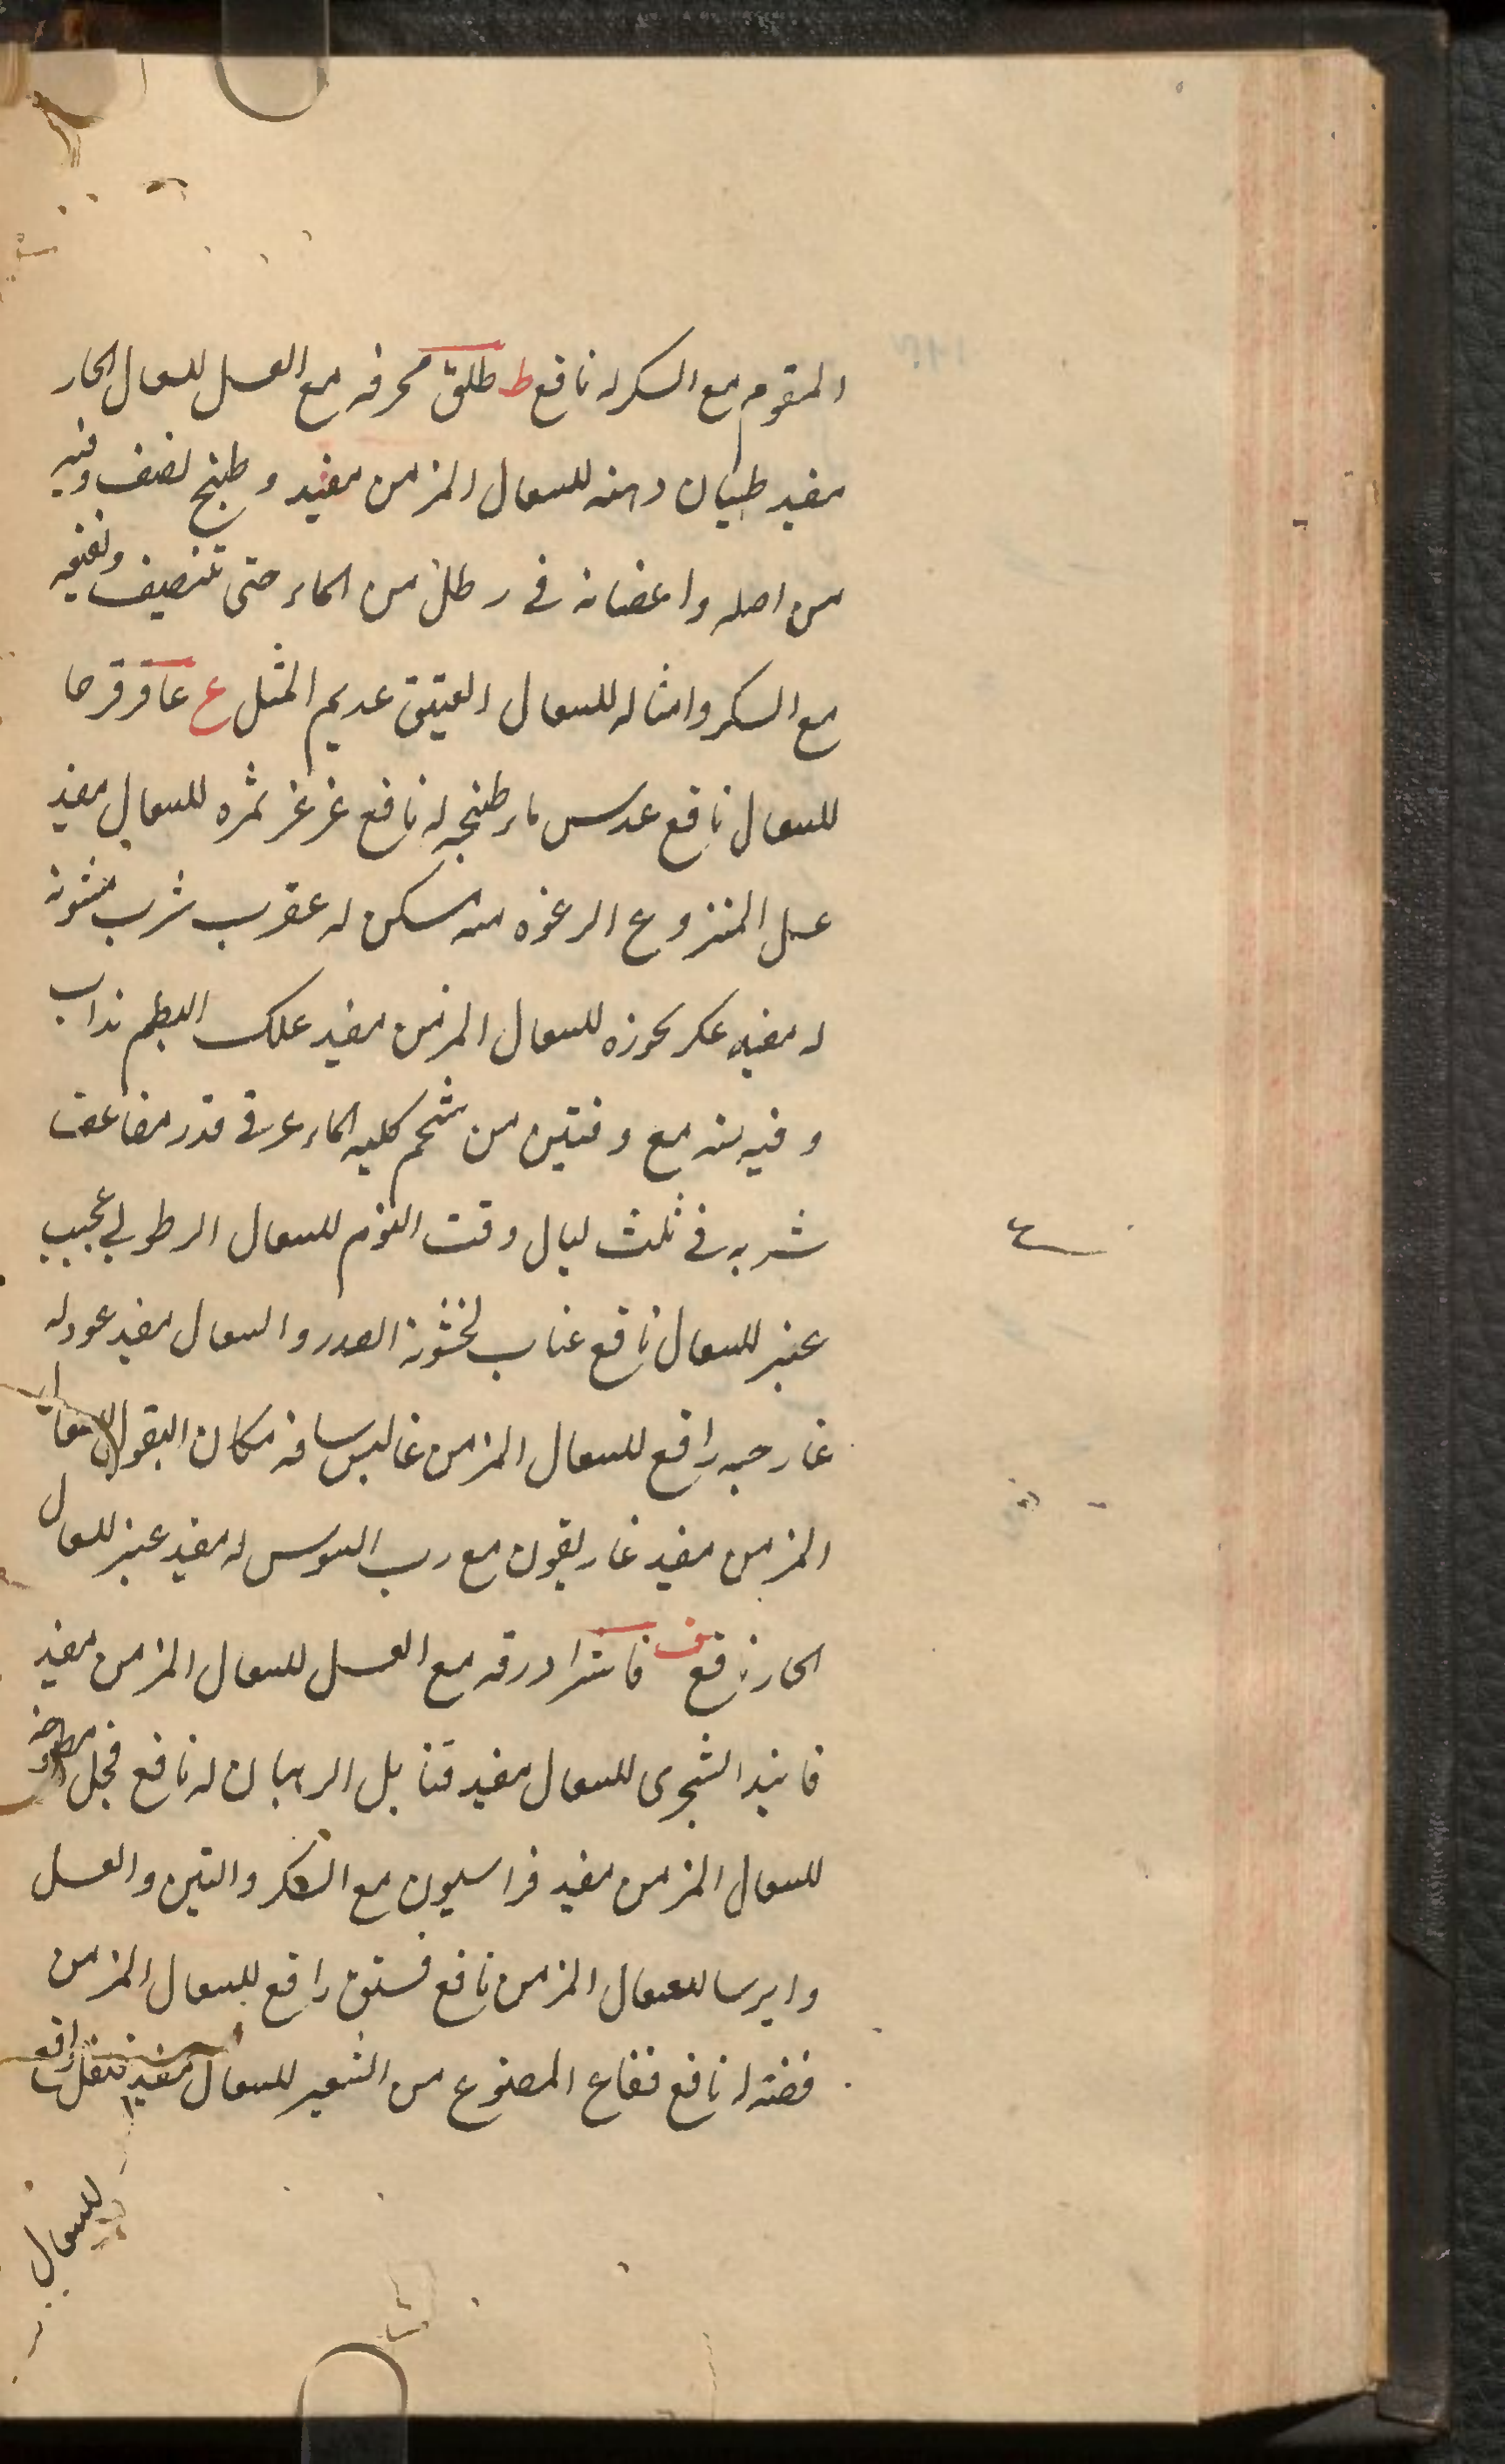 المقوم مع السكر له نافع ط طلق محرقه مع العسل للسعال الحار
مفيد طيبان دهنه للسعال المزمن مفيد و طبخ نصف وقيه
من اصله واغصانه فى رطل من الماء حتى تنصيف
مع السكر وامثاله للسعال العتيق عديم المثل ع عاقرقرحا
للسعال نافع عدس ماء طبخه له نافع عرعر ثمره للسعال مفيد
عسل المنزوع الرغوه منه مسكن له عقرب شرب مشويه
له مفيد عكر بخوره للسعال المزمن مفيد علك البطم يذاب
وقيه منه مع وقتين من شحم كليه الماعز فى قدر مضاعف
شربه فى ثلث ليال وقت النوم للسعال الرطوبى عجيب
عنبر للسعال نافع عناب لخشونة الصدر والسعال مفيد عود له
غار حبه رافع للسعال المزمن غاليس ساقه مكان البقول للسعال
المزمن مفيد غاريقون مع رب السوس له مفيد عنبر للسعال
الحار نافع ف فاشرا ورقه مع العسل للسعال المزمن مفيد
فانيد الشجرى للسعال مفيد قنابل الرهبان له نافع فجل مطبوخه
للسعال المزمن مفيد فراسيون مع السكر والتين والعسل
وايرسا للسعال المزمن نافع فستق رافع للسعال المزمن
فضه له نافع فقاع المصنوع من الشعير للسعال مفيد فلفل رافع
للسعال